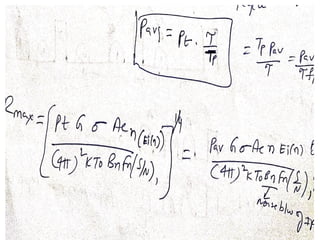 Pavg = Pt · τ/Tp = Tp Pav/τ = Pav
Rmax = [Pt G σ Ae n (Ei(n))/(4π)² K To Bn Fn (S/N)₁]^1/4 = Pav G σ Ae n Ei(n)/(4π)² K To Bn Fn (S/N)₁
noise b/w of IF